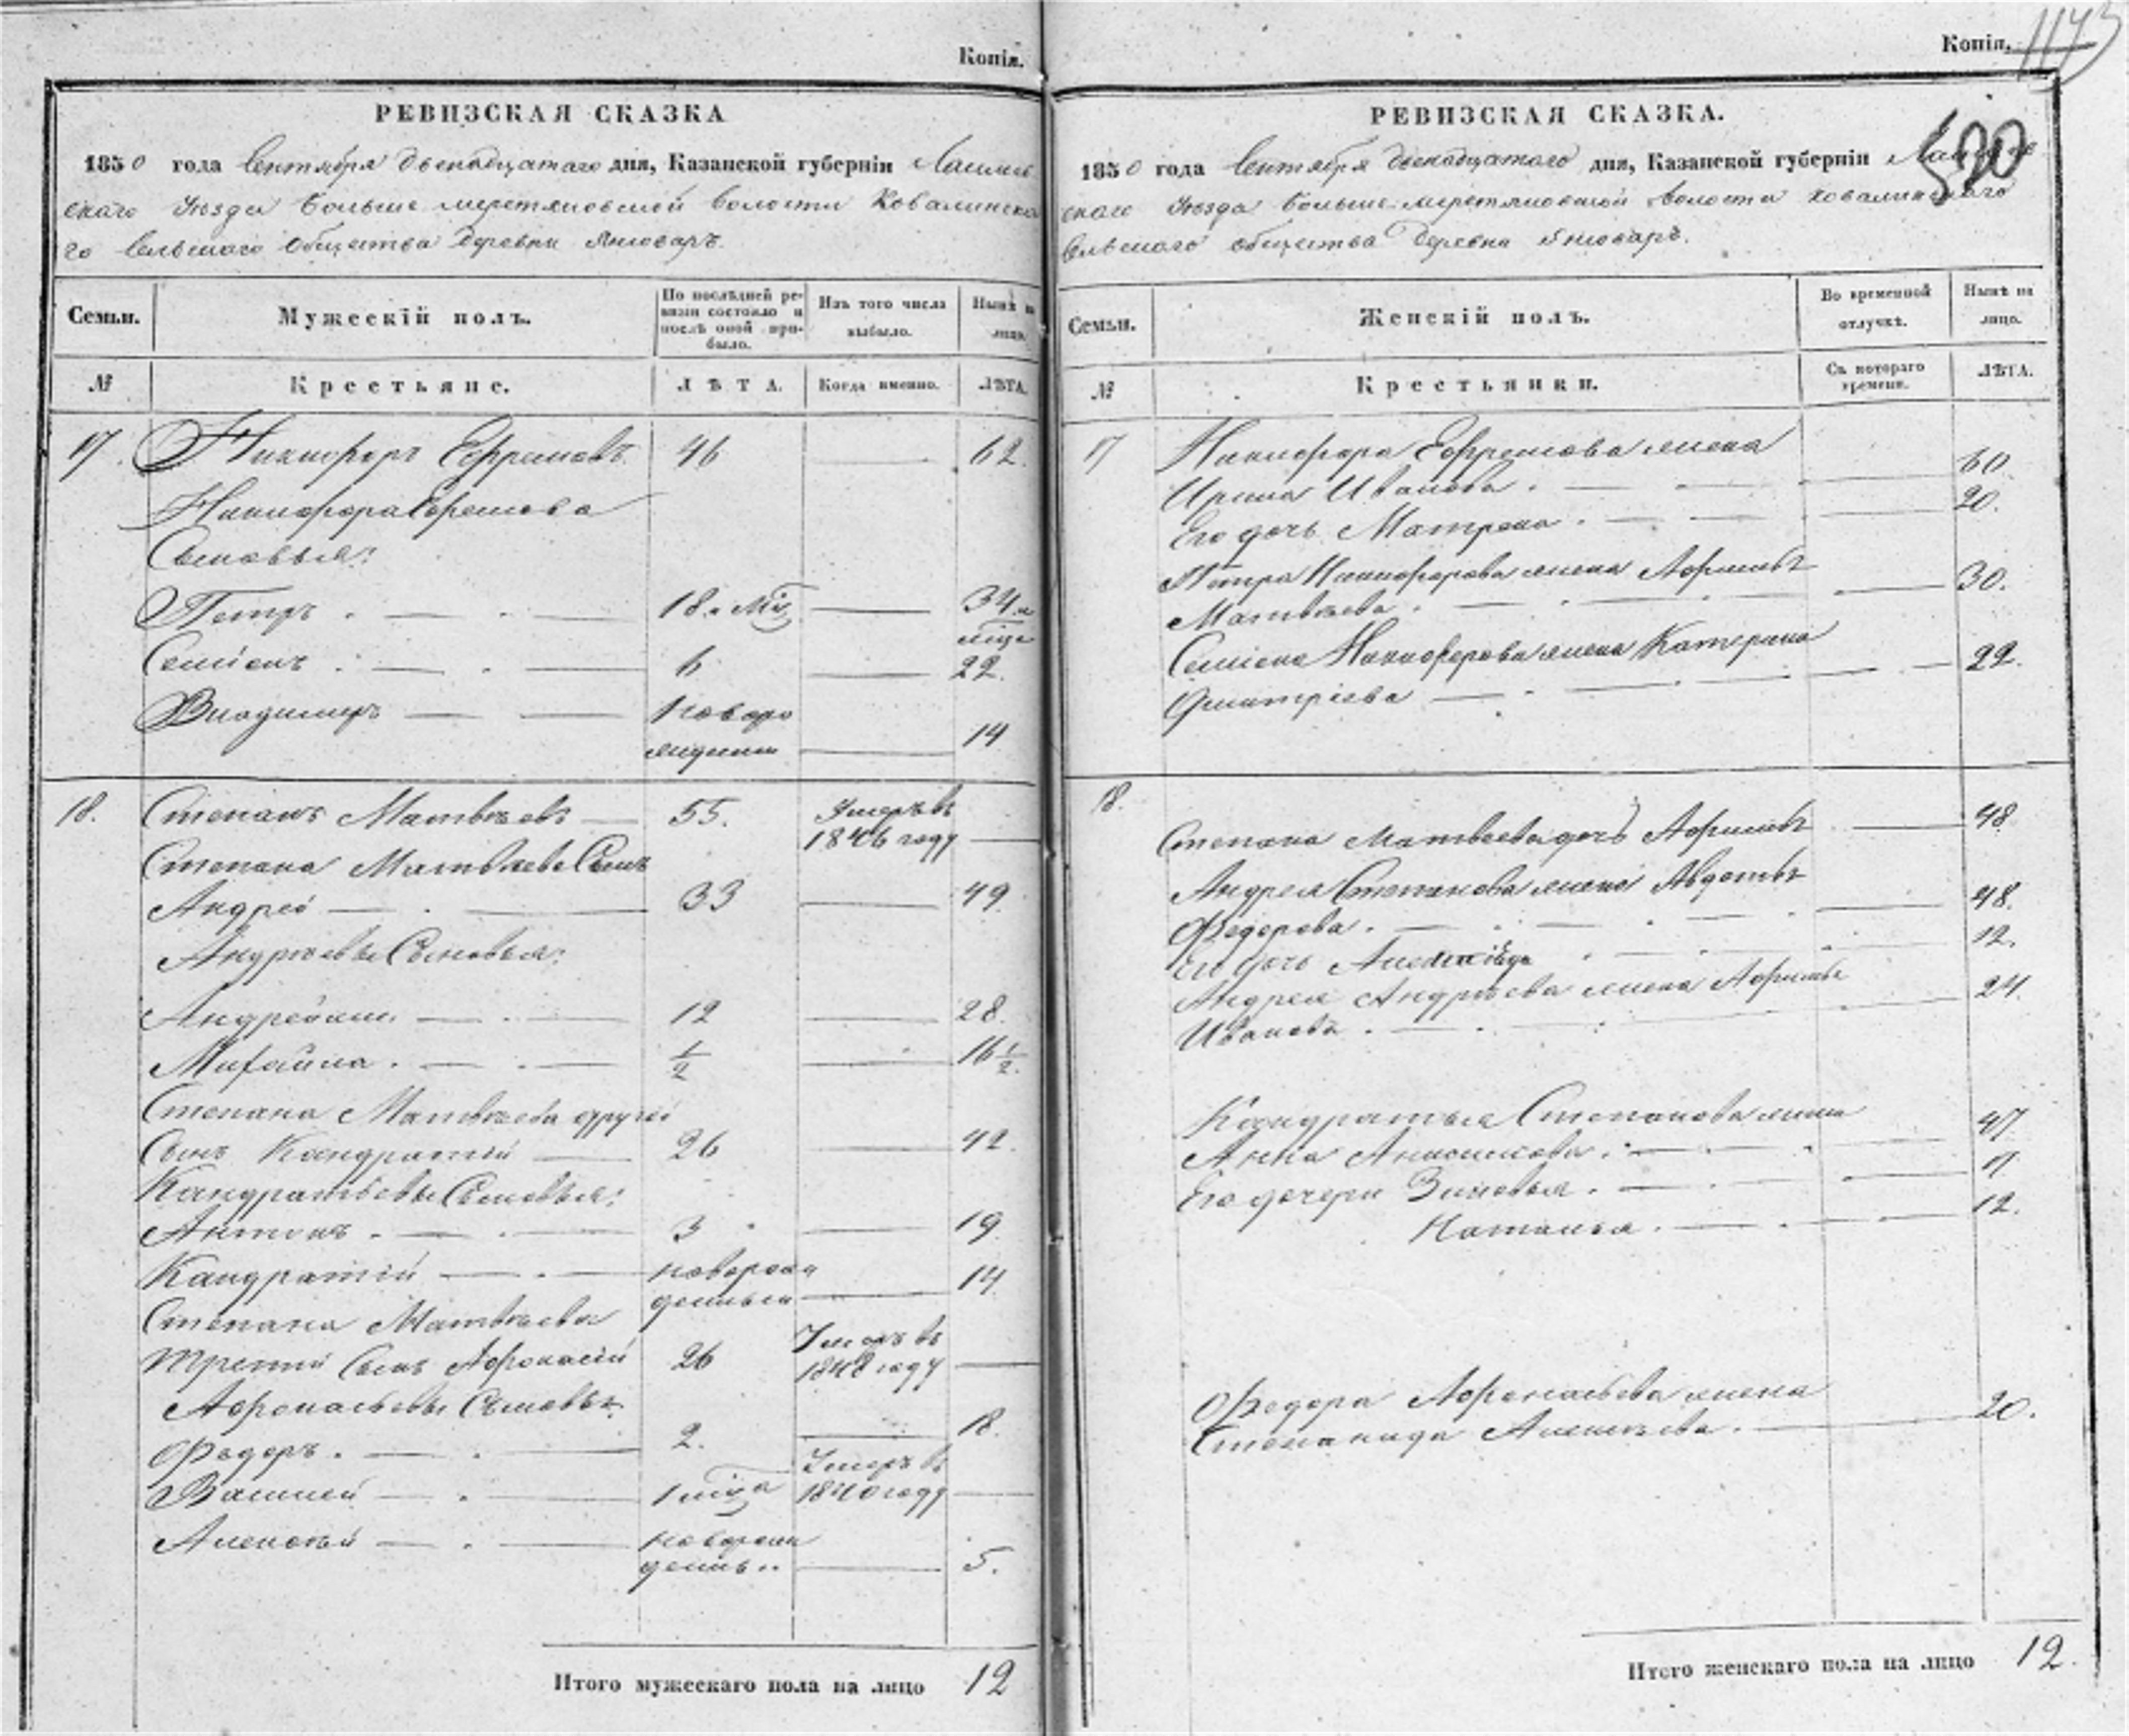 Копія.
РЕВИЗСКАЯ СКАЗКА
1850 года Сентября двенадцатаго дня, Казанской губерніи Лаишев
скаго Уезда Больше меретяковской волости Ковалинска
го Сельскаго Общества деревни Янсоваръ.
Семьи.
Мужескій полъ.
По послѣдней ре-
визіи состояло и
послѣ оной при-
было.
Изъ того числа
выбыло.
Нынѣ на
лицо.
№
Крестьяне.
ЛѢТА.
Когда именно.
ЛѢТА.
17. Никифоръ Ефремовъ 46 62.
Никифора Ефремова
Сыновья:
Петръ 18. 34.
Семіонъ 6 22.
Владимиръ Новоро
жденный 14
18. Степанъ Матвѣевъ 55. Умеръ въ
1846 году
Степана Матвѣева Сынъ
Андрей 33 49.
Андрѣевы Сыновья:
Андреянъ 12 28.
Михайла 1/2 16 1/2.
Степана Матвѣева другой
Сынъ Кандратій 26 42.
Кандратьевы Сыновья:
Антонъ 3 19.
Кандратій новорож
денный 14
Степана Матвѣева
третій Сынъ Афонасій 26 Умеръ въ
1848 году
Афонасьевы Сыновья
Федоръ 2. 18.
Василей 1 мѣца Умеръ въ
1840 году
Алексѣй новорож
денны 5.
Итого мужескаго пола на лицо 12
Копія. 1173
РЕВИЗСКАЯ СКАЗКА.
1850 года Сентября двенадцатаго дня, Казанской губерніи
скаго Уезда Больше-меретяковской волости Ковалинскаго
Сельскаго общества деревни Янсоваръ.
Семьи.
Женскій полъ.
Во временной
отлучкѣ.
Нынѣ на
лицо.
№
Крестьянки.
Съ котораго
времени.
ЛѢТА.
17 Никифора Ефремова жена
Ирина Иванова 60
Его дочь Матрена 20.
Петра Никифорова жена Афимья
Матвѣева 30.
Семіона Никифорова жена Катерина
Дмитріева 22.
18. Степана Матвѣева дочь Афимья 48
Андрея Степанова жена Авдотья
Федорова 48.
Его дочь 12.
Андрея Андрѣева жена Афимья
Иванова 24.
Кандратья Степанова жена
Анна 47
Его дочери Зиновья 17
Наталья 12.
Федора Афонасьева жена
Степанида Алексѣева 20.
Итого женскаго пола на лицо 12.